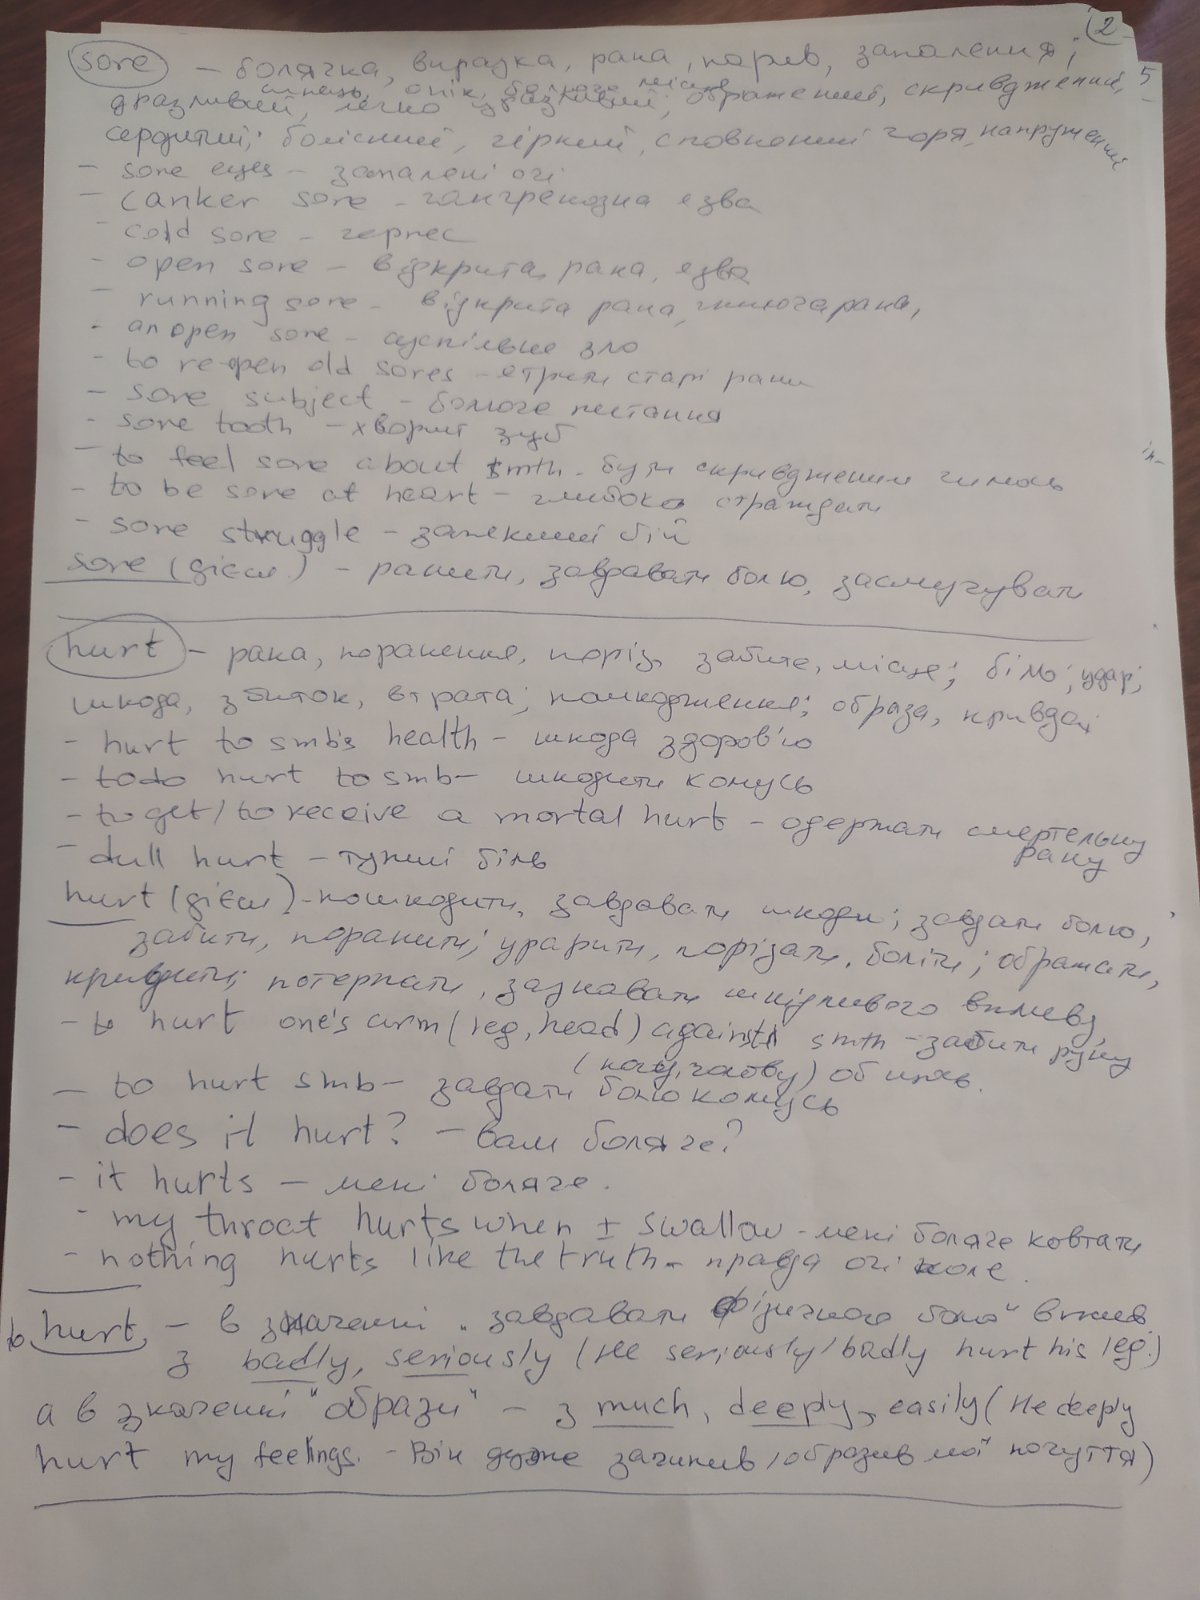 2
sore – болячка, виразка, рана, нарив, запалення;
опік, болюче місце
дразливий, легко вразливий; ображений, скривджений,
сердитий; болісний, гіркий, сповнений горя, напружений
5
- sore eyes – запалені очі
- canker sore – гангренозна язва
- cold sore – герпес
- open sore – відкрита рана, язва
- running sore – відкрита рана, гниюча рана,
- an open sore – суспільне зло
- to re-open old sores – ятрити старі рани
- sore subject – болюче питання
- sore tooth – хворий зуб
- to feel sore about smth – бути скривдженим чимось
- to be sore at heart – глибоко страждати
- sore struggle – запеклий бій
sore (дієсл) – ранити, завдавати болю, засмучувати
hurt – рана, поранення, поріз, забите, місце; біль; удар;
шкода, збиток, втрата; пошкодження; образа, кривда;
- hurt to smb's health – шкода здоров'ю
- to do hurt to smb – шкодити комусь
- to get / to receive a mortal hurt – одержати смертельну
рану
- dull hurt – тупий біль
hurt (дієсл) – пошкодити, завдавати шкоди; завдати болю,
забити, поранити; ударити, порізати, боліти; ображати,
кривдити; потерпати, зазнавати шкідливого впливу,
- to hurt one's arm (leg, head) against smth – забити руку
(ногу, голову) об щось.
- to hurt smb – завдати болю комусь
- does it hurt? – вам боляче?
- it hurts – мені боляче.
- my throat hurts when I swallow – мені боляче ковтати
- nothing hurts like the truth – правда очі коле.
to hurt, – в значенні "завдавати фізичного болю" вжив.
з badly, seriously (He seriously/badly hurt his leg.)
а в значенні "образи" – з much, deeply, easily (He deeply
hurt my feelings. – Він дуже зачепив/образив мої почуття)